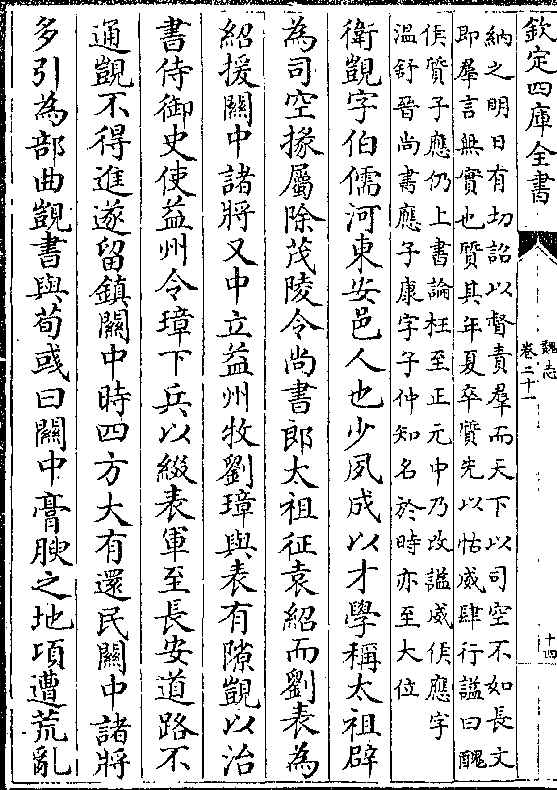 欽定四庫全書
魏志
卷二十一
十四
納之明日有切詔以督責羣而天下以司空不如長文
即羣言無實也質其年夏卒質先以怙威肆行諡曰醜
侯質子應仍上書論枉至正元中乃改諡威侯應字
溫舒晉尚書應子康字子仲知名於時亦至大位
衛覬字伯儒河東安邑人也少夙成以才學稱太祖辟
為司空掾屬除茂陵令尚書郎太祖征袁紹而劉表為
紹援關中諸將又中立益州牧劉璋與表有隙覬以治
書侍御史使益州令璋下兵以綴表軍至長安道路不
通覬不得進遂留鎮關中時四方大有還民關中諸將
多引為部曲覬書與荀彧曰關中膏腴之地頃遭荒亂